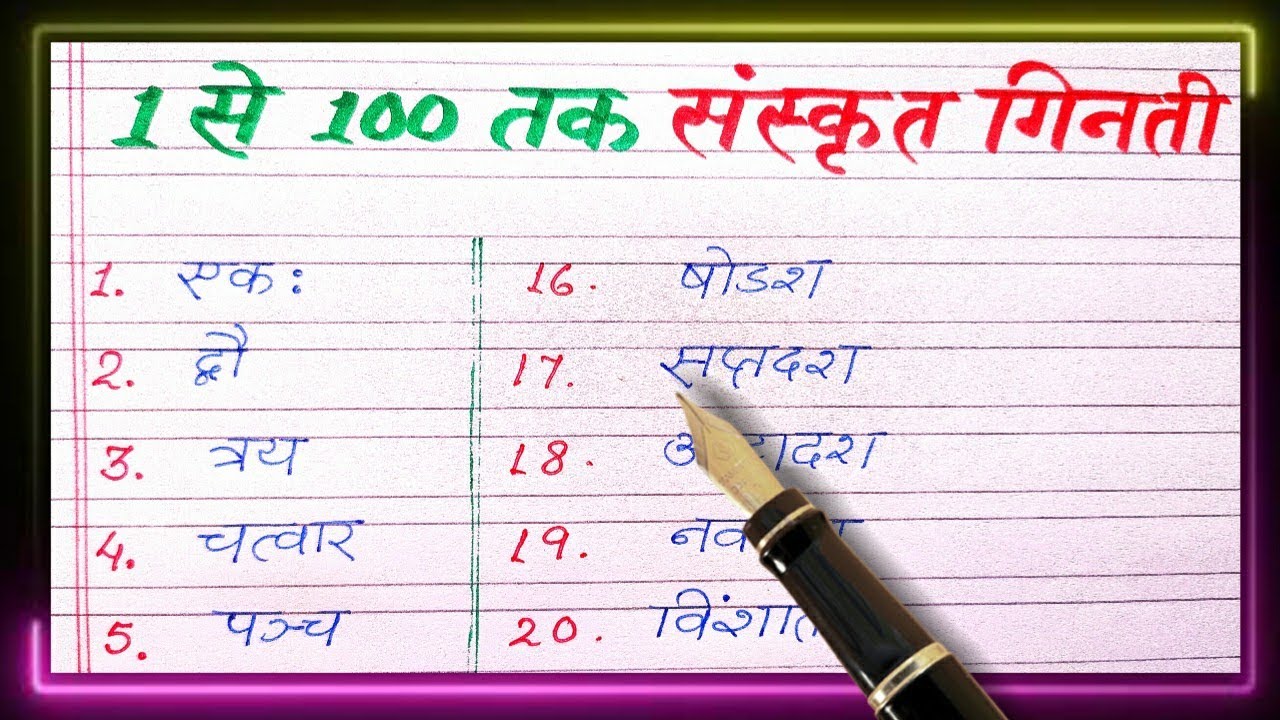 1 से 100 तक संस्कृत गिनती
1. एक:
2. द्वौ
3. त्रय
4. चत्वार
5. पञ्च
16. षोडश
17. सप्तदश
18.
19.
20.